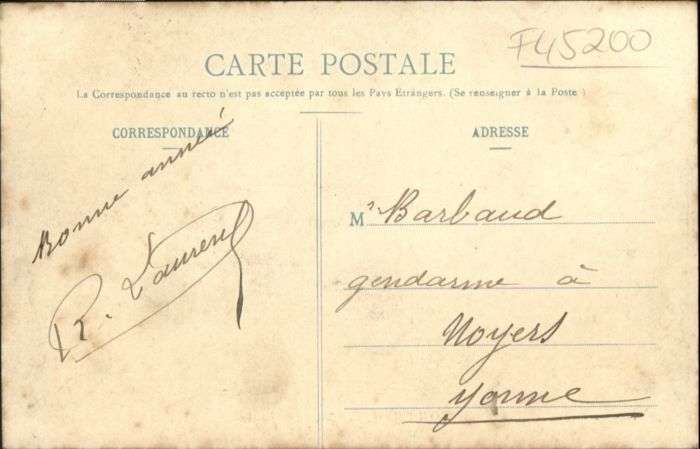 F45200
CARTE POSTALE
La Correspondance au recto n'est pas acceptée par tous les Pays Etrangers. (Se renseigner à la Poste)
CORRESPONDANCE
Bonne année
R. Laurent
ADRESSE
Mr Barbaud
gendarme à
Noyers
Yonne